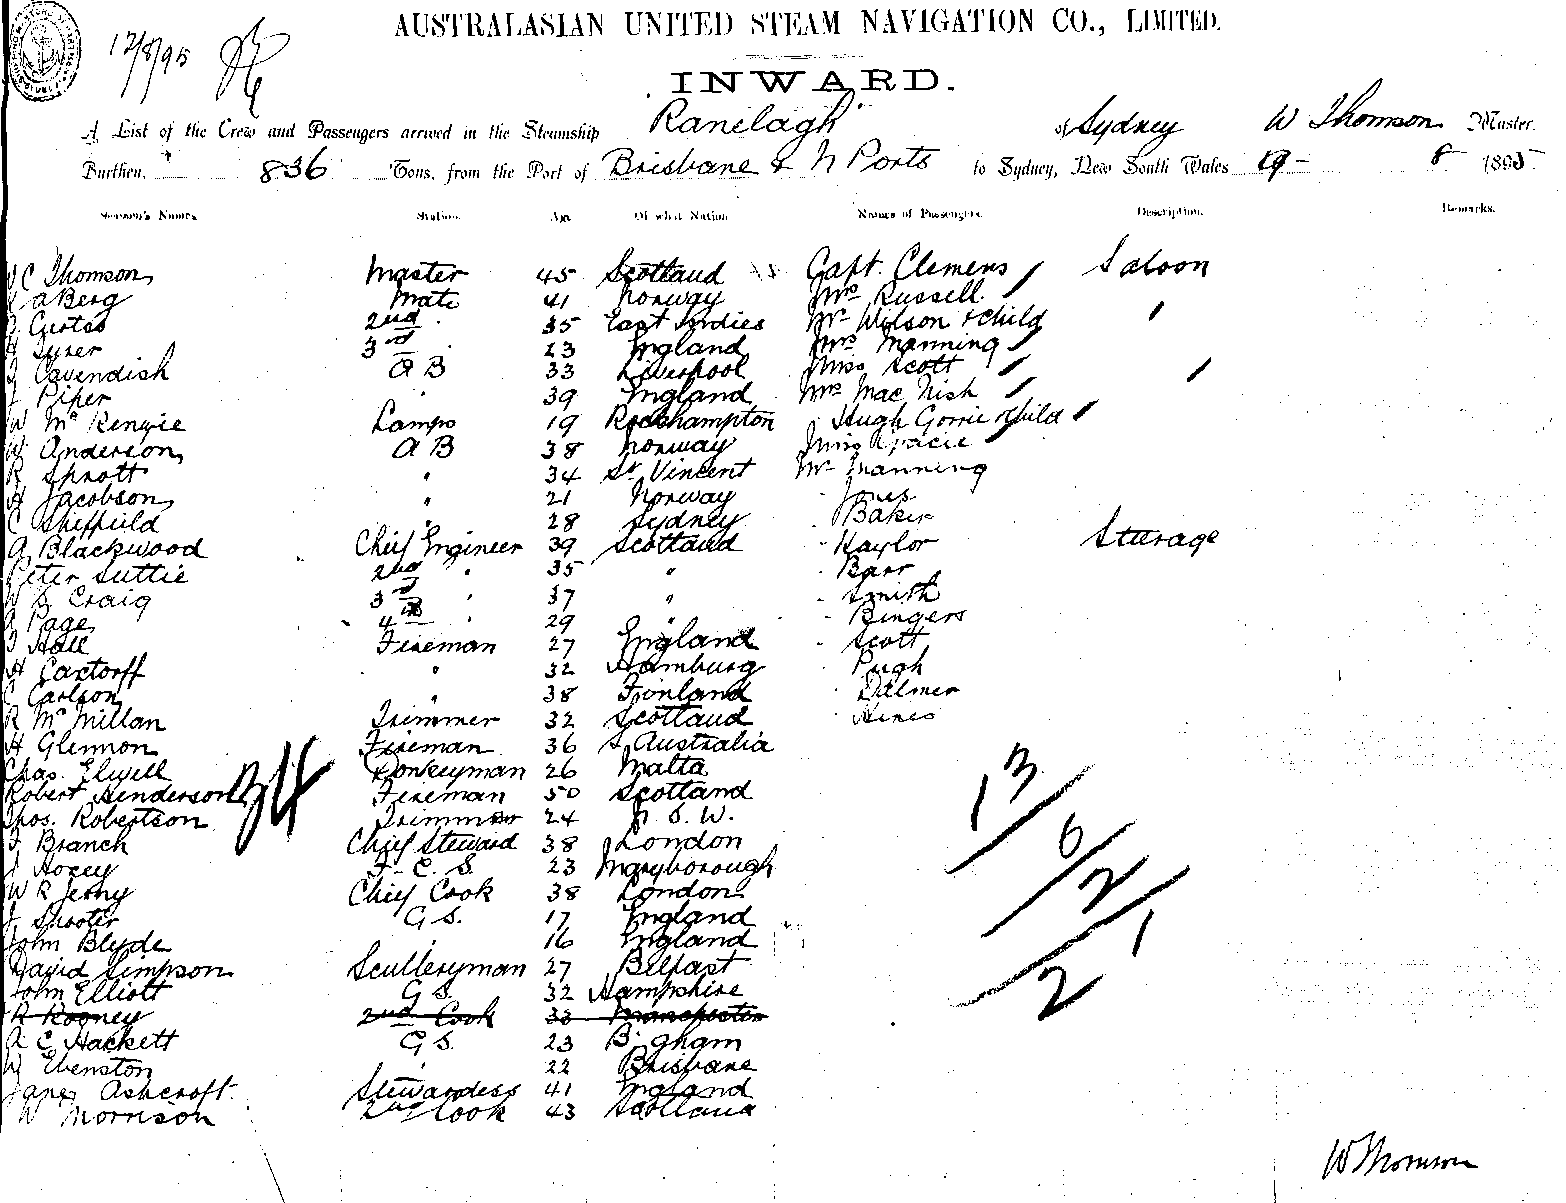 17/8/95
AUSTRALASIAN UNITED STEAM NAVIGATION CO., LIMITED.
INWARD.
A List of the Crew and Passengers arrived in the Steamship Ranelagh of Sydney W Thomson Master
Burthen, 836 Tons, from the Port of Brisbane & N Ports to Sydney, New South Wales 19 - 8 1895
Seamen's Names. Station. Age Of what Nation Names of Passengers. Description. Remarks.
C Thomson Master 45 Scotland Capt. Clemens / Saloon
a Berg Mate 41 Norway Mrs Russell
Gustas 2nd " 35 East Indies Mr Wilson & child "
Tyrer 3rd " 23 England Mrs Manning /
Cavendish A B 33 Liverpool Miss Scott / "
Piper " 39 England Mrs Mac Nish /
W Mc Kenzie Lamps 19 Rockhampton " Hugh Gorrie & child /
W Anderson A B 38 Norway Miss Gracie /
R Sprott " 34 St Vincent Mr Manning
H Jacobson " 21 Norway " Jones
C Sheffield " 28 Sydney " Baker
A Blackwood Chief Engineer 39 Scotland " Kaylor Steerage
Peter Suttie 2nd " 35 " " Barr
W B Craig 3rd " 37 " " Smith
A Page 4th " 29 " Bingers
Hall Fireman 27 England " Scott
H Eactorff " 32 Hamburg " Pugh
Carlson " 38 Finland " Dalmer
R Mc Millan Trimmer 32 Scotland " Hines
H Glennon Fireman 36 S Australia
Chas. Elwell Donkeyman 26 Malta
Robert Henderson Fireman 50 Scotland
Thos. Robertson Trimmer 24 N. S. W.
F Branch Chief Steward 38 London
Hocey F. C. S. 23 Maryborough
W R Jerny Chief Cook 38 London
J Shooter G S. 17 England
John Blyde 16 England
David Simpson Sculleryman 27 Belfast
John Elliott G S. 32 Hampshire
R Rooney 2nd Cook 33 Manchester
A C Hackett G S. 23 B'gham
W Ebenston " 22 Brisbane
Jane Ashcroft Stewardess 41 England
W Morrison 2nd Cook 43 Scotland
34
13/
6/2
2/1
W Thomson